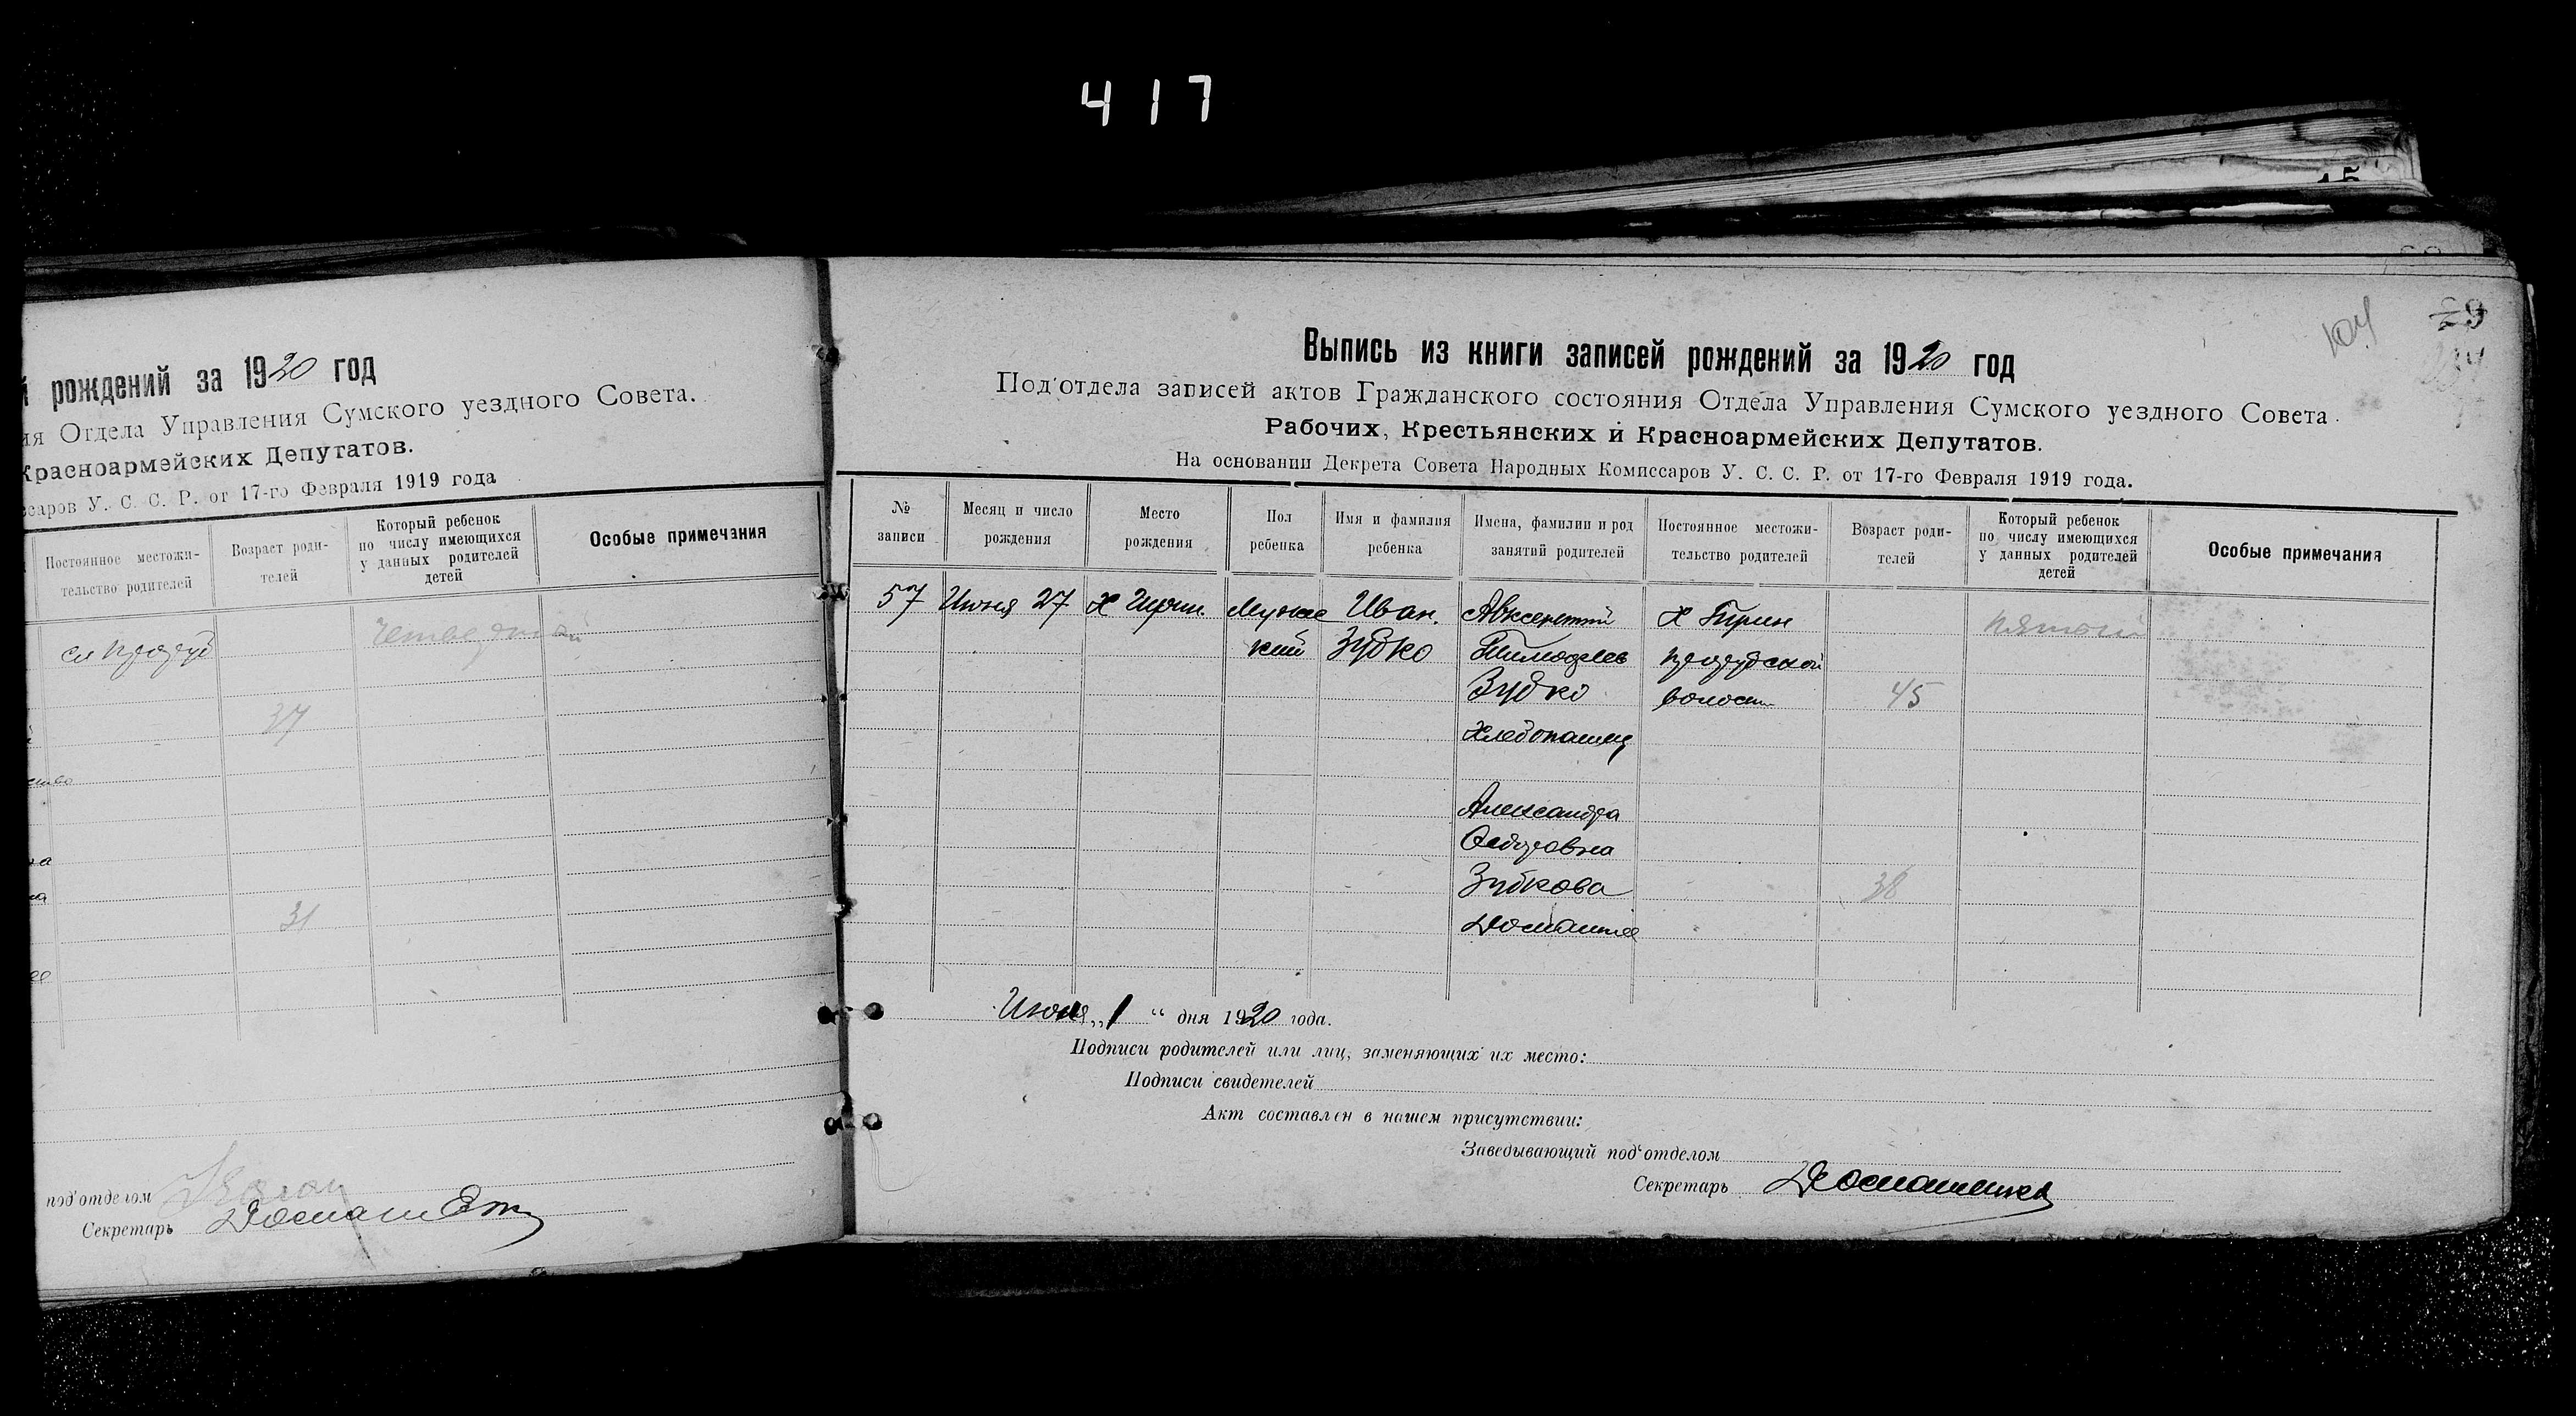 417
15
й рождений за 1920 год
ия Отдела Управления Сумского уездного Совета.
Красноармейских Депутатов.
ссаров У. С. С. Р. от 17-го Февраля 1919 года
Постоянное местожи-
тельство родителей
Возраст роди-
телей
Который ребенок
по числу имеющихся
у данных родителей
детей
Особые примечания
четвертый
37
ство
на
на
31
ее
под'отделом
Секретарь
29
104
Выпись из книги записей рождений за 1920 год
Под'отдела записей актов Гражданского состояния Отдела Управления Сумского уездного Совета.
Рабочих, Крестьянских и Красноармейских Депутатов.
На основании Декрета Совета Народных Комиссаров У. С. С. Р. от 17-го Февраля 1919 года.
№
записи
Месяц и число
рождения
Место
рождения
Пол
ребенка
Имя и фамилия
ребенка
Имена, фамилии и род
занятий родителей
Постоянное местожи-
тельство родителей
Возраст роди-
телей
Который ребенок
по числу имеющихся
у данных родителей
детей
Особые примечания
57
Июня 27
Х
Мужс
кий
Иван.
Зубко
Авксентий
Тимофеев
Зубко
Хлебопашец
Александра
Федоровна
Зубкова
Домашнее
Х
волости
45
38
пятый
Июля „1“ дня 1920 года.
Подписи родителей или лиц, заменяющих их место:
Подписи свидетелей
Акт составлен в нашем присутствии:
Заведывающий под'отделом
Секретарь